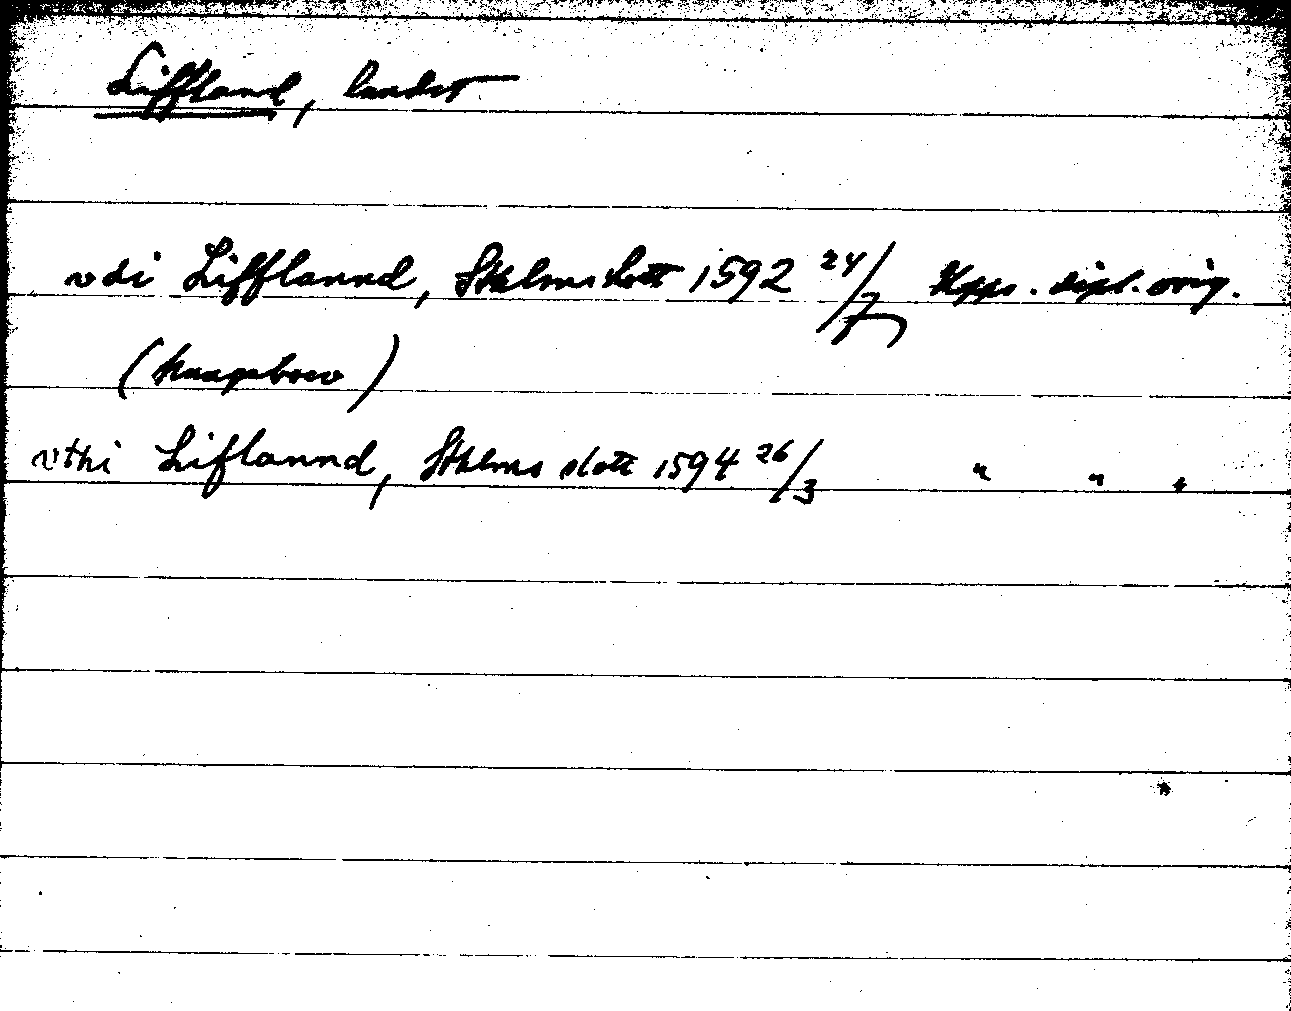 Liffland, landst
v di Lifflannd, Sthlms slott 1592 24/7 Upps. dipl. orig.
(knapebrev)
vthi Liflannd, Sthlms slott 1594 26/3 " " "